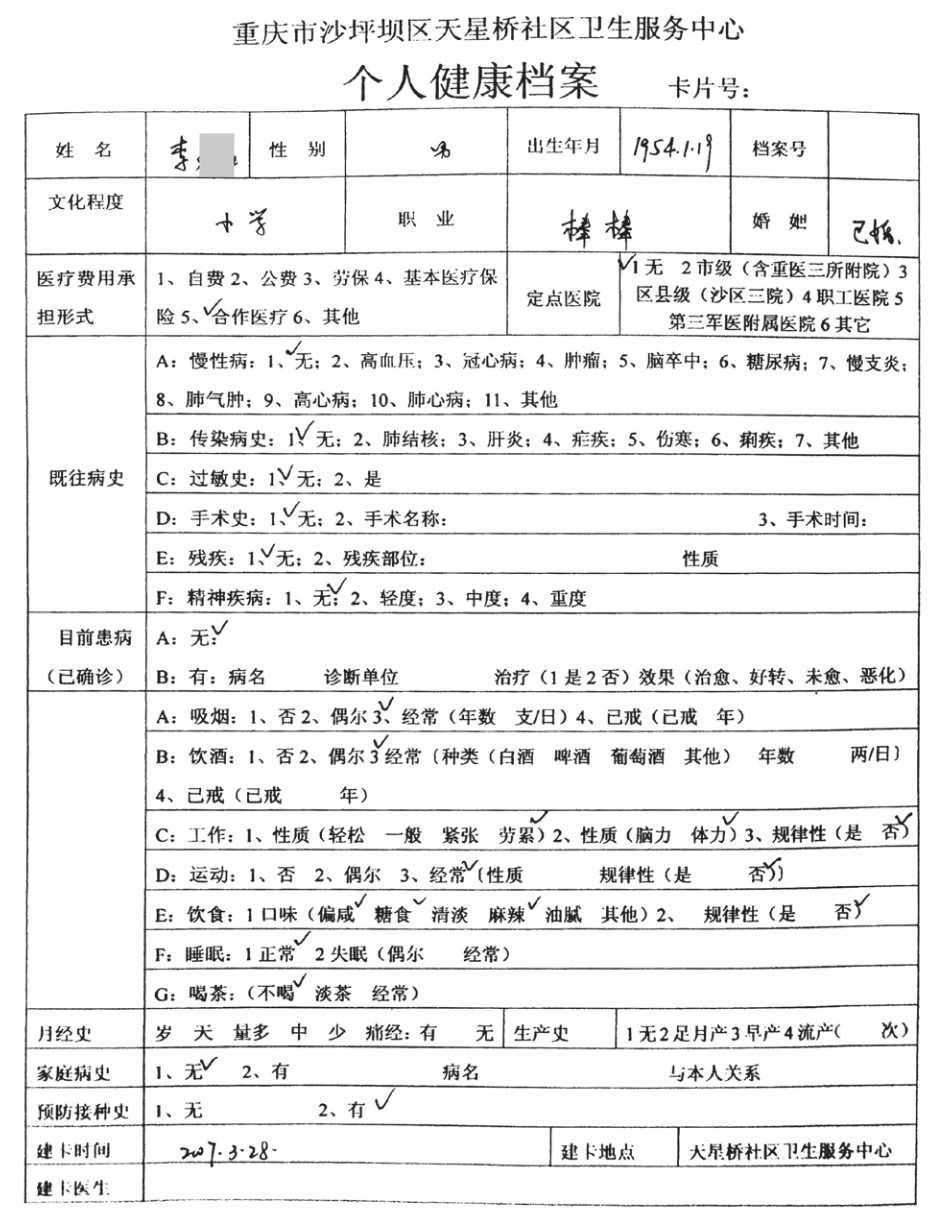 重庆市沙坪坝区天星桥社区卫生服务中心
个人健康档案 卡片号：
姓 名 李 性 别 男 出生年月 1954.1.19 档案号
文化程度 小学 职 业 棒棒 婚 姻 已婚.
医疗费用承担形式 1、自费 2、公费 3、劳保 4、基本医疗保
险 5、✓合作医疗 6、其他
定点医院 ✓1 无 2 市级（含重医三所附院）3
区县级（沙区三院）4 职工医院 5
第三军医附属医院 6 其它
既往病史
A：慢性病：1、✓无；2、高血压；3、冠心病；4、肿瘤；5、脑卒中；6、糖尿病；7、慢支炎；
8、肺气肿；9、高心病；10、肺心病；11、其他
B：传染病史：1、✓无；2、肺结核；3、肝炎；4、疟疾；5、伤寒；6、痢疾；7、其他
C：过敏史：1、✓无；2、是
D：手术史：1、✓无；2、手术名称： 3、手术时间：
E：残疾：1、✓无；2、残疾部位： 性质
F：精神疾病：1、无；✓2、轻度；3、中度；4、重度
目前患病
（已确诊）
A：无：✓
B：有：病名 诊断单位 治疗（1 是 2 否）效果（治愈、好转、未愈、恶化）
A：吸烟：1、否 2、偶尔 3、✓经常（年数 支/日）4、已戒（已戒 年）
B：饮酒：1、否 2、偶尔 3✓经常〔种类（白酒 啤酒 葡萄酒 其他） 年数 两/日〕
4、已戒（已戒 年）
C：工作：1、性质（轻松 一般 紧张 劳累✓）2、性质（脑力 体力✓）3、规律性（是 否✓）
D：运动：1、否 2、偶尔 3、经常✓〔性质 规律性（是 否✓）〕
E：饮食：1 口味（偏咸✓ 糖食✓ 清淡 麻辣✓ 油腻 其他）2、 规律性（是 否✓）
F：睡眠：1 正常✓ 2 失眠（偶尔 经常）
G：喝茶：（不喝✓ 淡茶 经常）
月经史 岁 天 量多 中 少 痛经：有 无 生产史 1 无 2 足月产 3 早产 4 流产( 次）
家庭病史 1、无✓ 2、有 病名 与本人关系
预防接种史 1、无 2、有 ✓
建卡时间 2007.3.28. 建卡地点 天星桥社区卫生服务中心
建卡医生